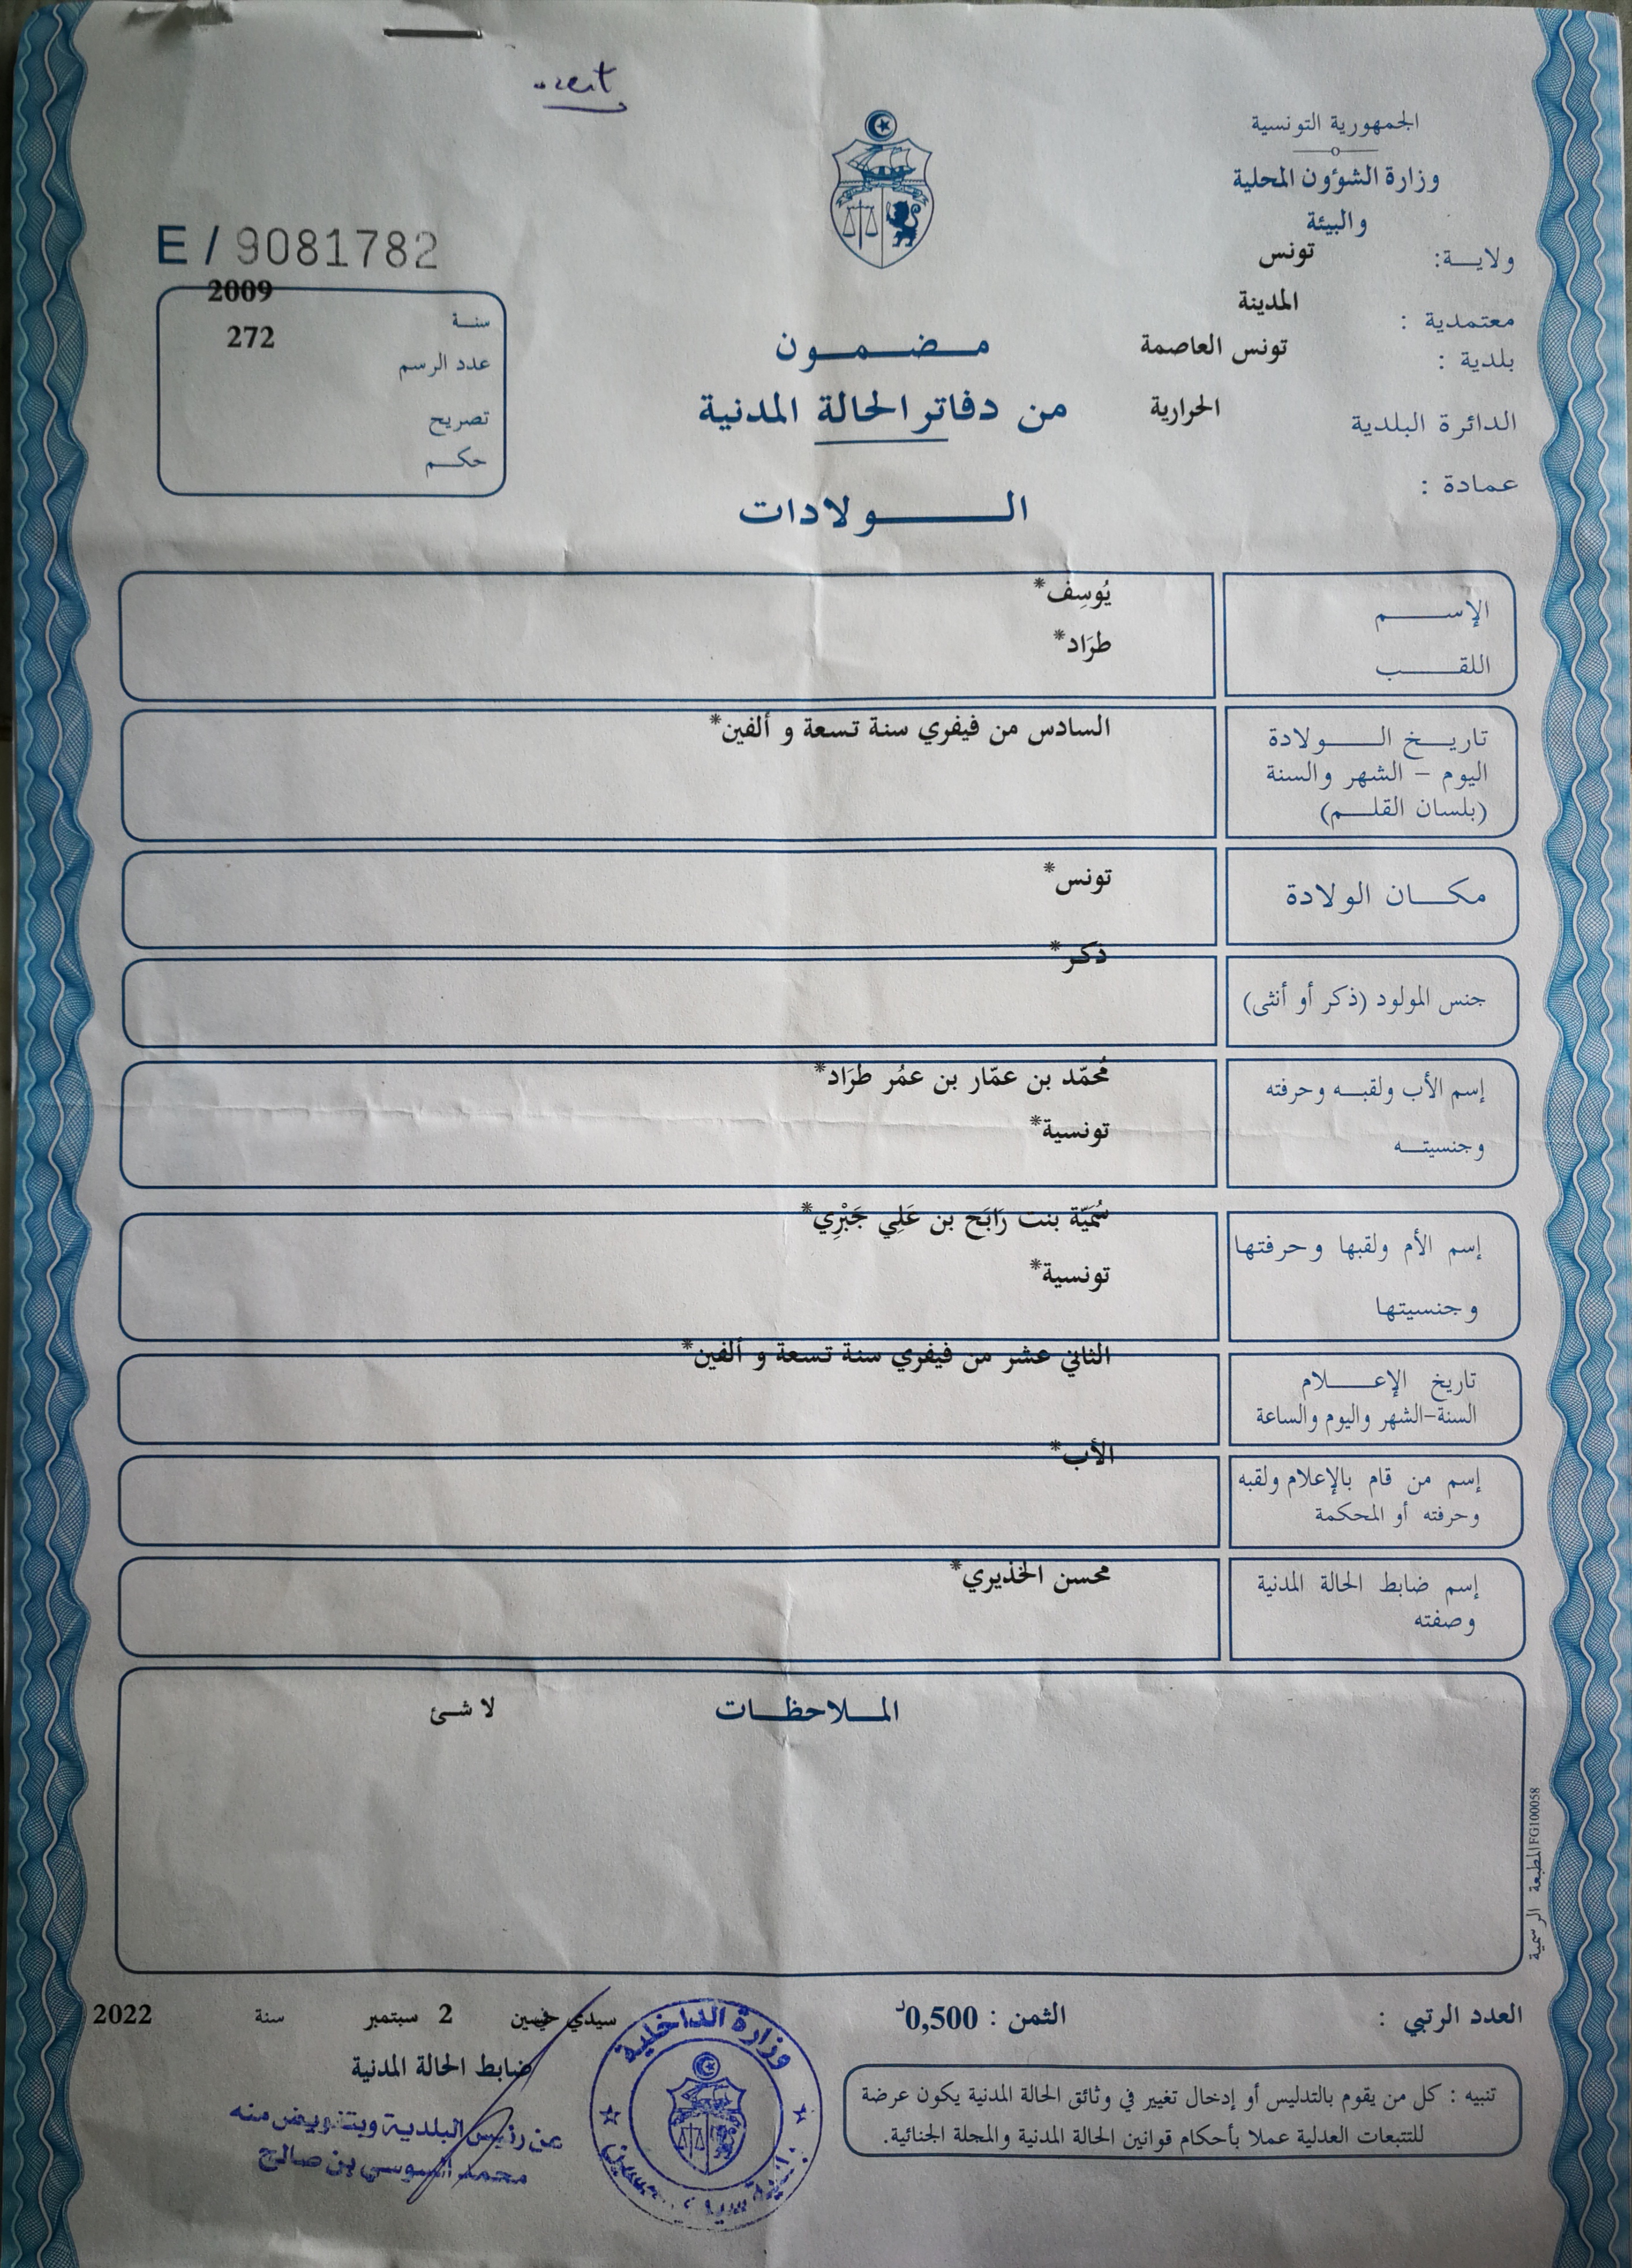 الجمهورية التونسية
وزارة الشؤون المحلية
والبيئة
ولايـــة: تونس
معتمدية : المدينة
بلدية : تونس العاصمة
الدائرة البلدية الحرارية
عمادة :
مـضـمـون
من دفاتر الحالة المدنية
الـولادات
E / 9081782
سنـة 2009
عدد الرسم 272
تصريح
حكـم
الإســـم يُوسِف*
اللقـــب طرَاد*
تاريـخ الـولادة السادس من فيفري سنة تسعة و ألفين*
اليوم - الشهر والسنة
(بلسان القلـم)
مكـان الولادة تونس*
جنس المولود (ذكر أو أنثى) ذكر*
إسم الأب ولقبـه وحرفته مُحمّد بن عمّار بن عمُر طرَاد*
وجنسيتـه تونسية*
إسم الأم ولقبها وحرفتها سُمَيّة بنت رَابَح بن عَلِي جَبْرِي*
وجنسيتها تونسية*
تاريخ الإعـلام الثاني عشر من فيفري سنة تسعة و ألفين*
السنة-الشهر واليوم والساعة
إسم من قام بالإعلام ولقبه الأب*
وحرفته أو المحكمة
إسم ضابط الحالة المدنية محسن الخذيري*
وصفته
المـلاحظـات لا شئ
المطبعة الرسمية FG100058
العدد الرتبي :
الثمن : 0,500د
تنبيه : كل من يقوم بالتدليس أو إدخال تغيير في وثائق الحالة المدنية يكون عرضة
للتتبعات العدلية عملا بأحكام قوانين الحالة المدنية والمجلة الجنائية.
سيدي حسين 2 سبتمبر سنة 2022
ضابط الحالة المدنية
عن رئيس البلدية وبتفويض منه
محمد السوسي بن صالح
وزارة الداخلية